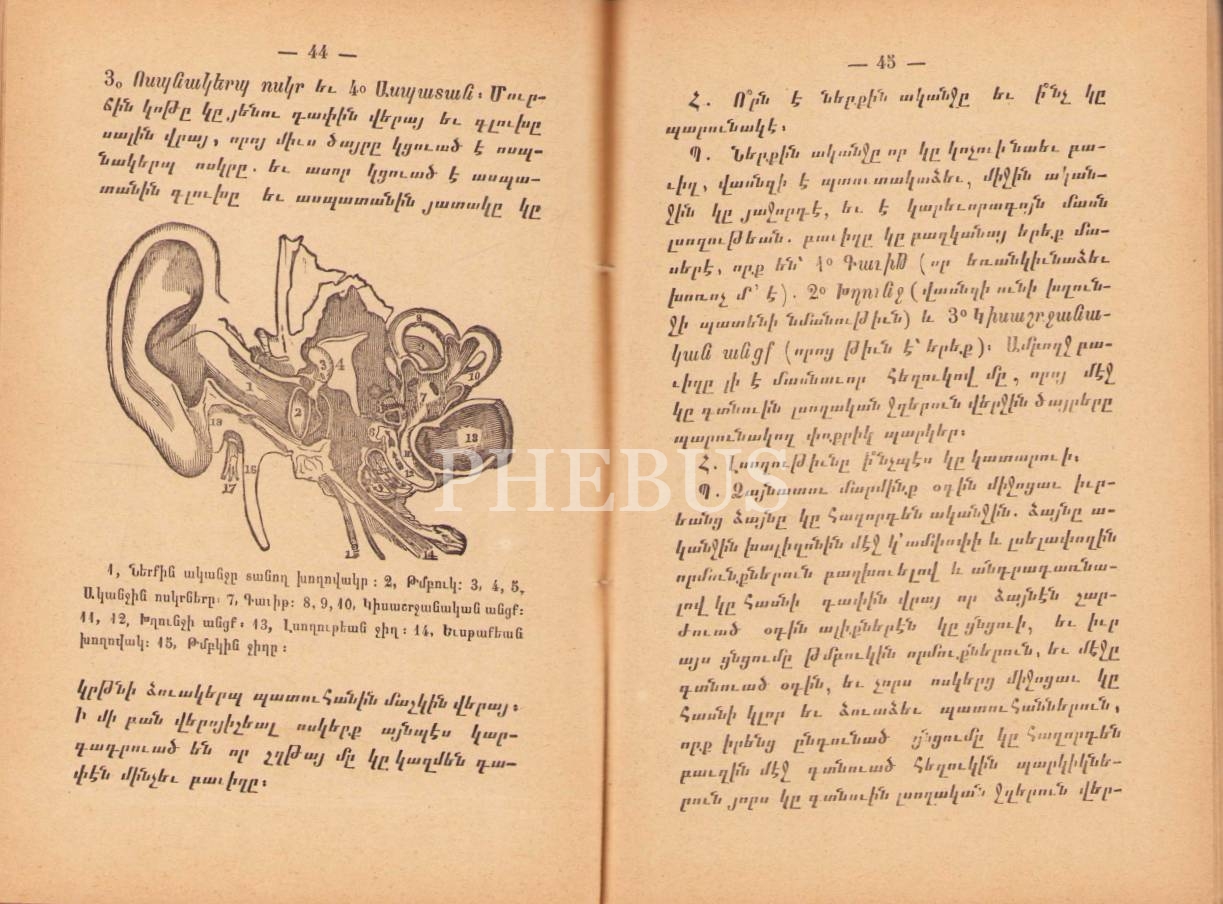 — 44 —
3օ Ոսպնակերպ ոսկր եւ 4օ Ասպատան։ Մուր-
ճին կոթը կը յենու դափին վերայ եւ գլուխը
սալին վրայ, որոյ միւս ծայրը կցուած է ոսպ-
նակերպ ոսկրը. եւ ասոր կցուած է ասպա-
տանին գլուխը եւ ասպատանին յատակը կը
1
2
3
4
6
7
8
10
13
13
16
17
15
14
1, Ներքին ականջը տանող խողովակր։ 2, Թմբուկ։ 3, 4, 5,
Ականջին ոսկրները։ 7, Գաւիթ։ 8, 9, 10, Կիսաշրջանական անցք։
11, 12, Խղունջի անցք։ 13, Լսողութեան ջիղ։ 14, Եւստաքեան
խողովակ։ 15, Թմբկին ջիղը։
կրթնի ձուակերպ պատուհանին մաշկին վերայ։
Ի մի բան վերոյիշեալ ոսկերք այնպէս կար-
գադրուած են որ շղթայ մը կը կազմեն դա-
փէն մինչեւ բաւիղը։
— 45 —
Հ. Ո՞րն է ներքին ականջը եւ ի՞նչ կը
պարունակէ։
Պ. Ներքին ականջը որ կը կոչուի նաեւ բա-
ւիղ, վասնզի է պտուտակաձեւ, միջին ական-
ջին կը յաջորդէ, եւ է կարեւորագոյն մասն
լսողութեան. բաւիղը կը բաղկանայ երեք մա-
սերէ, որք են՝ 1օ Գաւիթ (որ եռանկիւնաձեւ
խոռոչ մ՚ է). 2օ Խղունջ (վասնզի ունի խղուն-
ջի պատենի նմանութիւն) և 3օ Կիսաշրջանա-
կան անցք (որոց թիւն է՝ երեք)։ Ամբողջ բա-
ւիղը լի է մասնաւոր հեղուկով մը, որոյ մէջ
կը գտնուին լսողական ջղերուն վերջին ծայրերը
պարունակող փոքրիկ պարկեր։
Հ. Լսողութիւնը ի՞նչպէս կը կատարուի։
Պ. Ձայնատու մարմինք օդին միջոցաւ իւր-
եանց ձայնը կը հաղորդեն ականջին. ձայնը ա-
կանջին խալիզոնին մէջ կ՚ամփոփի և լսելափողին
որմունքներուն բաղխուելով և անդրադառնա-
լով կը հասնի դափին վրայ որ ձայնէն շար-
ժուած օդին ալիքներէն կը ցնցուի, եւ իւր
այս ցնցումը թմբուկին որմուքներուն, եւ մէջը
գտնուած օդին, եւ չորս ոսկերց միջոցաւ կը
հասնի կլոր եւ ձուաձեւ պատուհաններուն,
որք իրենց ընդունած ցնցումը կը հաղորդեն
բաւղին մէջ գտնուած հեղուկին պարկիկնե-
րուն յորս կը գտնուին լսողական ջղերուն վեր-
PHEBUS